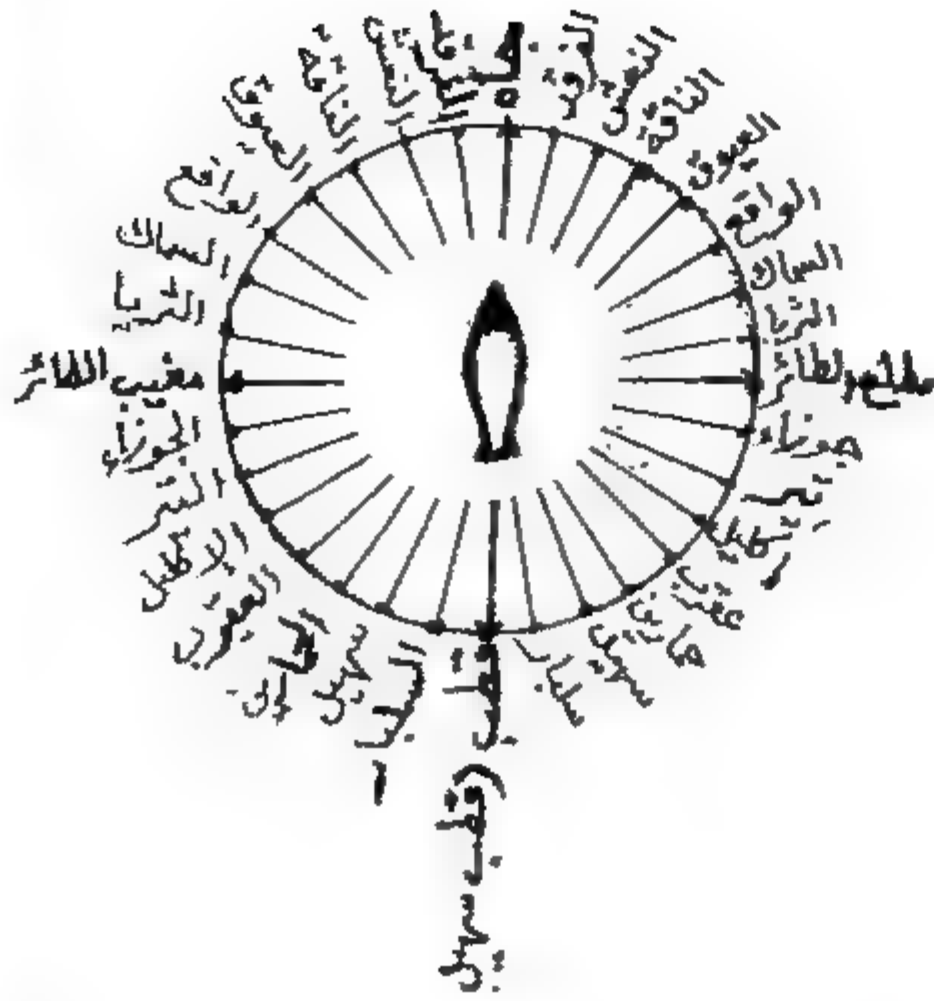 الفرقد
النعش
الناقة
العيوق
الواقع
السماك
الثريا
مطلع الطائر
جوزاء
تير
إكليل
عقرب
حمارين
سهيل
سلبار
قطب
(قطب سهيل
السلبار
سهيل
الحمارين
العقرب
الإكليل
التير
الجوزاء
مغيب الطائر
الثريا
السماك
الواقع
العيوق
الناقة
النعش